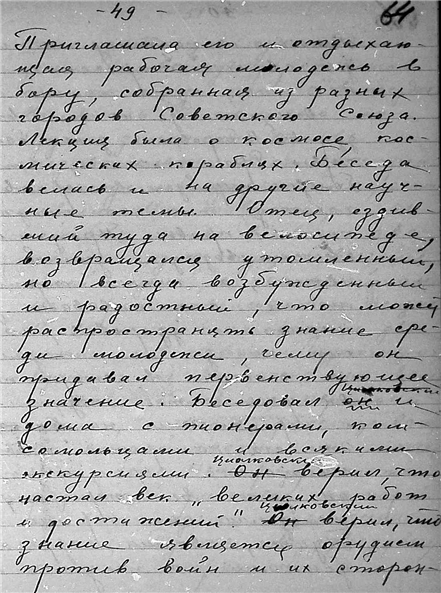 - 49 -
64
Приглашала его и отдыхаю-
щая рабочая молодежь в
бору, собранная из разных
городов Советского Союза.
Лекция была о космосе, кос-
мических кораблях. Беседа
велась и на другие науч-
ные темы. Отец, ездив-
ший туда на велосипеде,
возвращался утомленный,
но всегда возбужденный
и радостный, что может
распространять знание сре-
ди молодежи, чему он
придавал первенствующее
Циолковский
значение. Беседовал он и
дома с пионерами, ком-
сомольцами и всякими
Циолковский
экскурсиями. Он верил, что
настал век „великих работ
Циолковский
и достижений." Он верил, что
знание является орудием
против войн и их сторон-